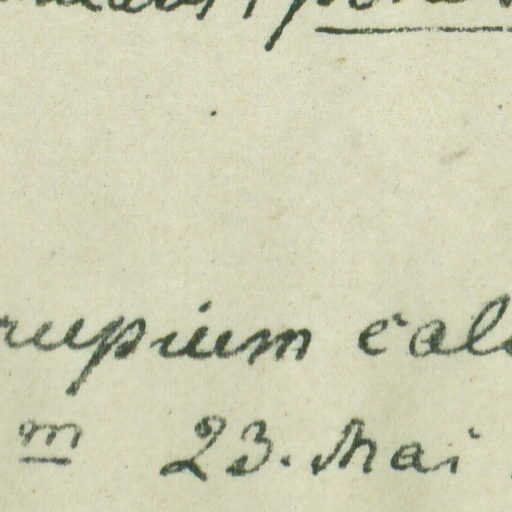 rupium cal
m 23. Mai